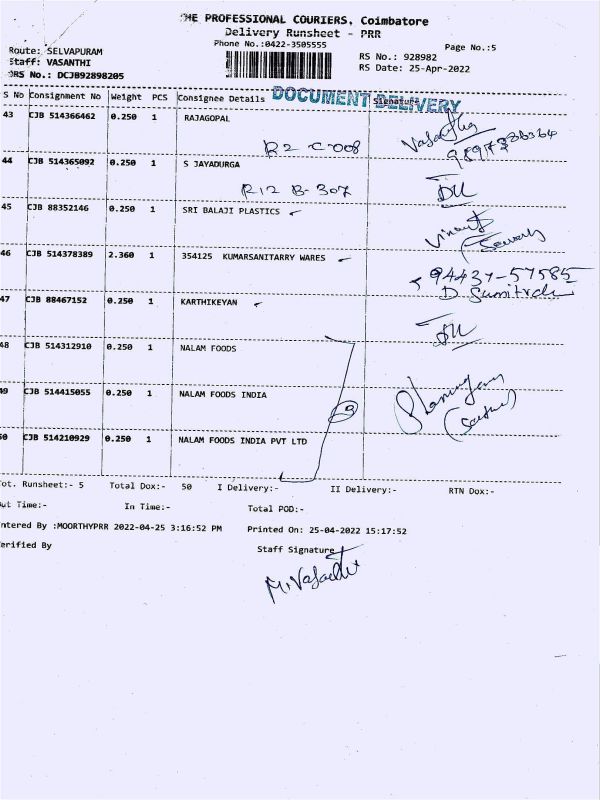 THE PROFESSIONAL COURIERS, Coimbatore
Delivery Runsheet - PRR
Phone No.:0422-3505555
Page No.:5
Route: SELVAPURAM
RS No.: 928982
Staff: VASANTHI
RS Date: 25-Apr-2022
DRS No.: DCJB92898205
DOCUMENT DELIVERY
S No Consignment No Weight PCS Consignee Details Signature
43 CJB 514366462 0.250 1 RAJAGOPAL
R2 C-008
44 CJB 514365092 0.250 1 S JAYADURGA
R12 B-307
45 CJB 88352146 0.250 1 SRI BALAJI PLASTICS
46 CJB 514378389 2.360 1 354125 KUMARSANITARRY WARES
94437-57585
47 CJB 88467152 0.250 1 KARTHIKEYAN
48 CJB 514312910 0.250 1 NALAM FOODS
49 CJB 514415055 0.250 1 NALAM FOODS INDIA
3
50 CJB 514210929 0.250 1 NALAM FOODS INDIA PVT LTD
Tot. Runsheet:- 5 Total Dox:- 50 I Delivery:- II Delivery:- RTN Dox:-
Out Time:- In Time:- Total POD:-
Entered By :MOORTHYPRR 2022-04-25 3:16:52 PM Printed On: 25-04-2022 15:17:52
Verified By Staff Signature
M. Vasanthi